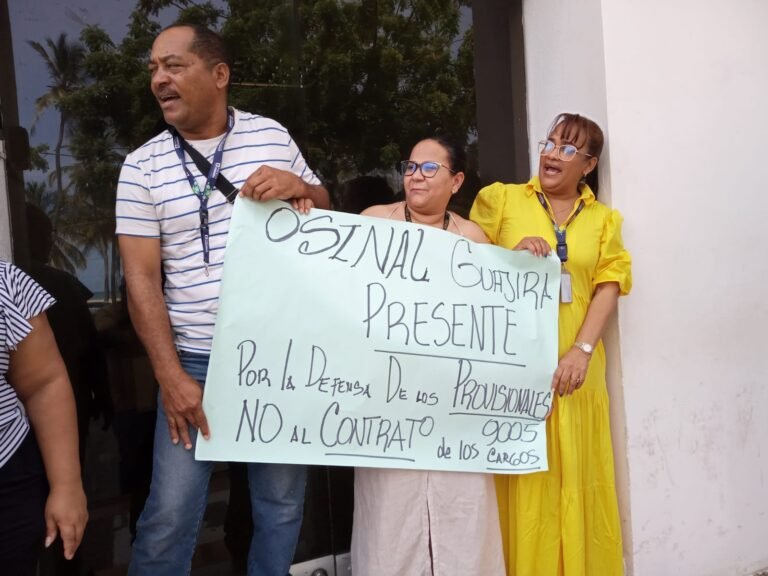 OSINAL GUAJIRA
PRESENTE
POR lA DEFENSA DE LOS PROVISIONALES
NO AL CONTRATO de los 9005
CARGOS